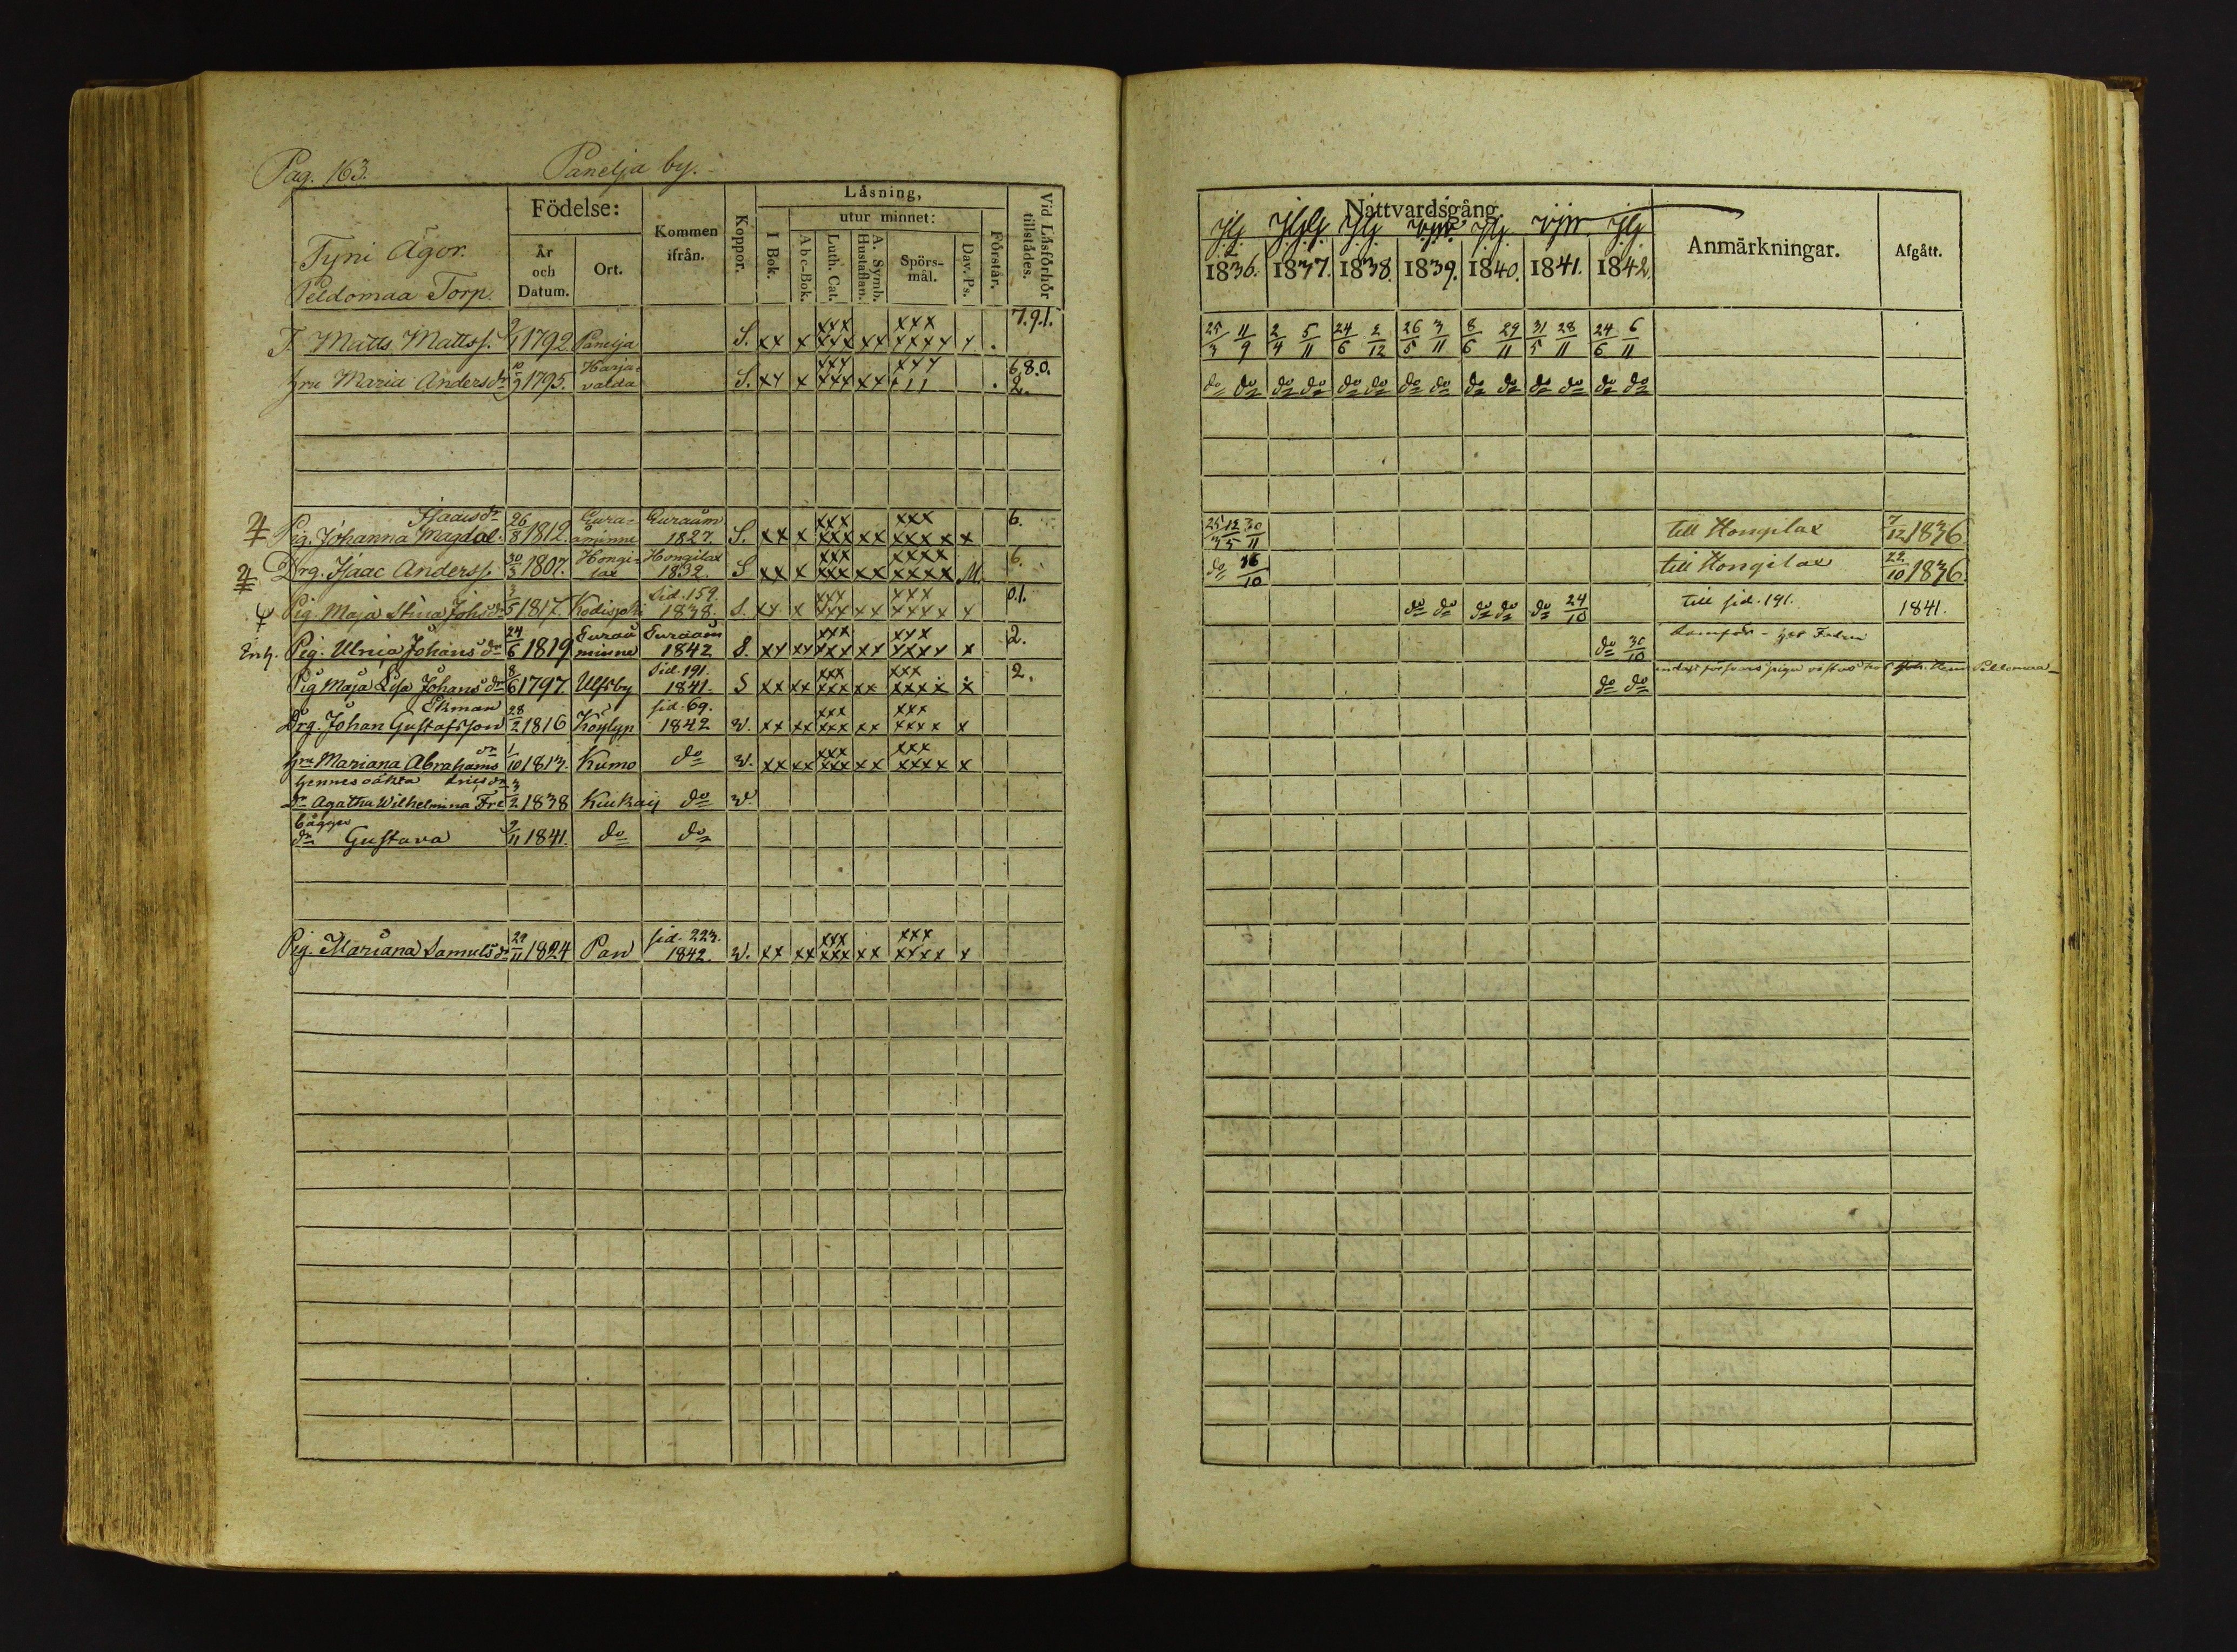 Pag. 163. Panelja by.
Födelse: Kommen ifrån. Koppor. Läsning, Vid Läsförhör tillstädes.
utur minnet:
Tyni Ägor. År och Datum. Ort. I Bok. Abc-Bok. Luth. Cat. A. Symb. Hustaflan. Spörsmål. Dav. Ps. Förstår.
Peldomaa Torp.
T. Matts Mattss. 1792 Panelja S. xx x xxx xxx xx xxx xxxx x 7.9.1.
hru Maria Andersdr 10/9 1795. Harjavalda S. xx x xxx xxx xx xxx 6.8.0. 2.
Isaacsdr
Pig. Johanna Magdal. 26/8 1812. Euraåminne Euraåm 1827. S. xx x xxx xxx xx xxx xxxx x 6.
Drg. Isaac Anderss. 30/3 1807. Hongilax Hongilax 1832. S xx x xxx xxx xx xxxx xxxx M 6.
Pig. Maja Stina Johsdr 3/5 1817. Kodisjoki Sid. 159. 1838. S. xx x xxx xxx xx xxx xxxx x 0.1.
Enk. Pig. Ulrica Johansdr 24/6 1819 Euraåminne Euraåm 1842 S. xx xx xxx xxx xx xxx xxxx x 2.
Pig Maja Lisa Johansdr 8/6 1797 Ulfsby Sid. 191. 1841. S xx xx xxx xxx xx xxx xxxx x 2.
Ekman
Drg. Johan Gustafsson 28/2 1816 sid. 69. 1842 v. xx xx xxx xxx xx xxx xxxx x
hru Mariana Abrahamsdr 1/10 1813. Kumo do v. xx xx xxx xxx xx xxx xxxx x
hennes oäkta
dr Agatha Wilhelmina 3/2 1838 Kiukais do v.
dr Gustava 9/11 1841. do do
Pig. Mariana Samulsdr 29/11 1824 Pan sid. 223. 1842. v. xx xx xxx xxx xx xxx xxxx x
Nattvardsgång. Anmärkningar. Afgått.
1836. 1837. 1838. 1839. 1840. 1841. 1842.
25/3 11/9 2/4 5/11 24/6 2/12 26/5 3/11 8/6 29/11 31/5 28/11 24/6 6/11
do do do do do do do do do do do do do do
25/3 12/5 30/11 till Hongilax 7/12 1836
do 16/10 till Hongilax 22/10 1836.
do do do do do 24/10 till sid. 191. 1841.
do 30/10
do do